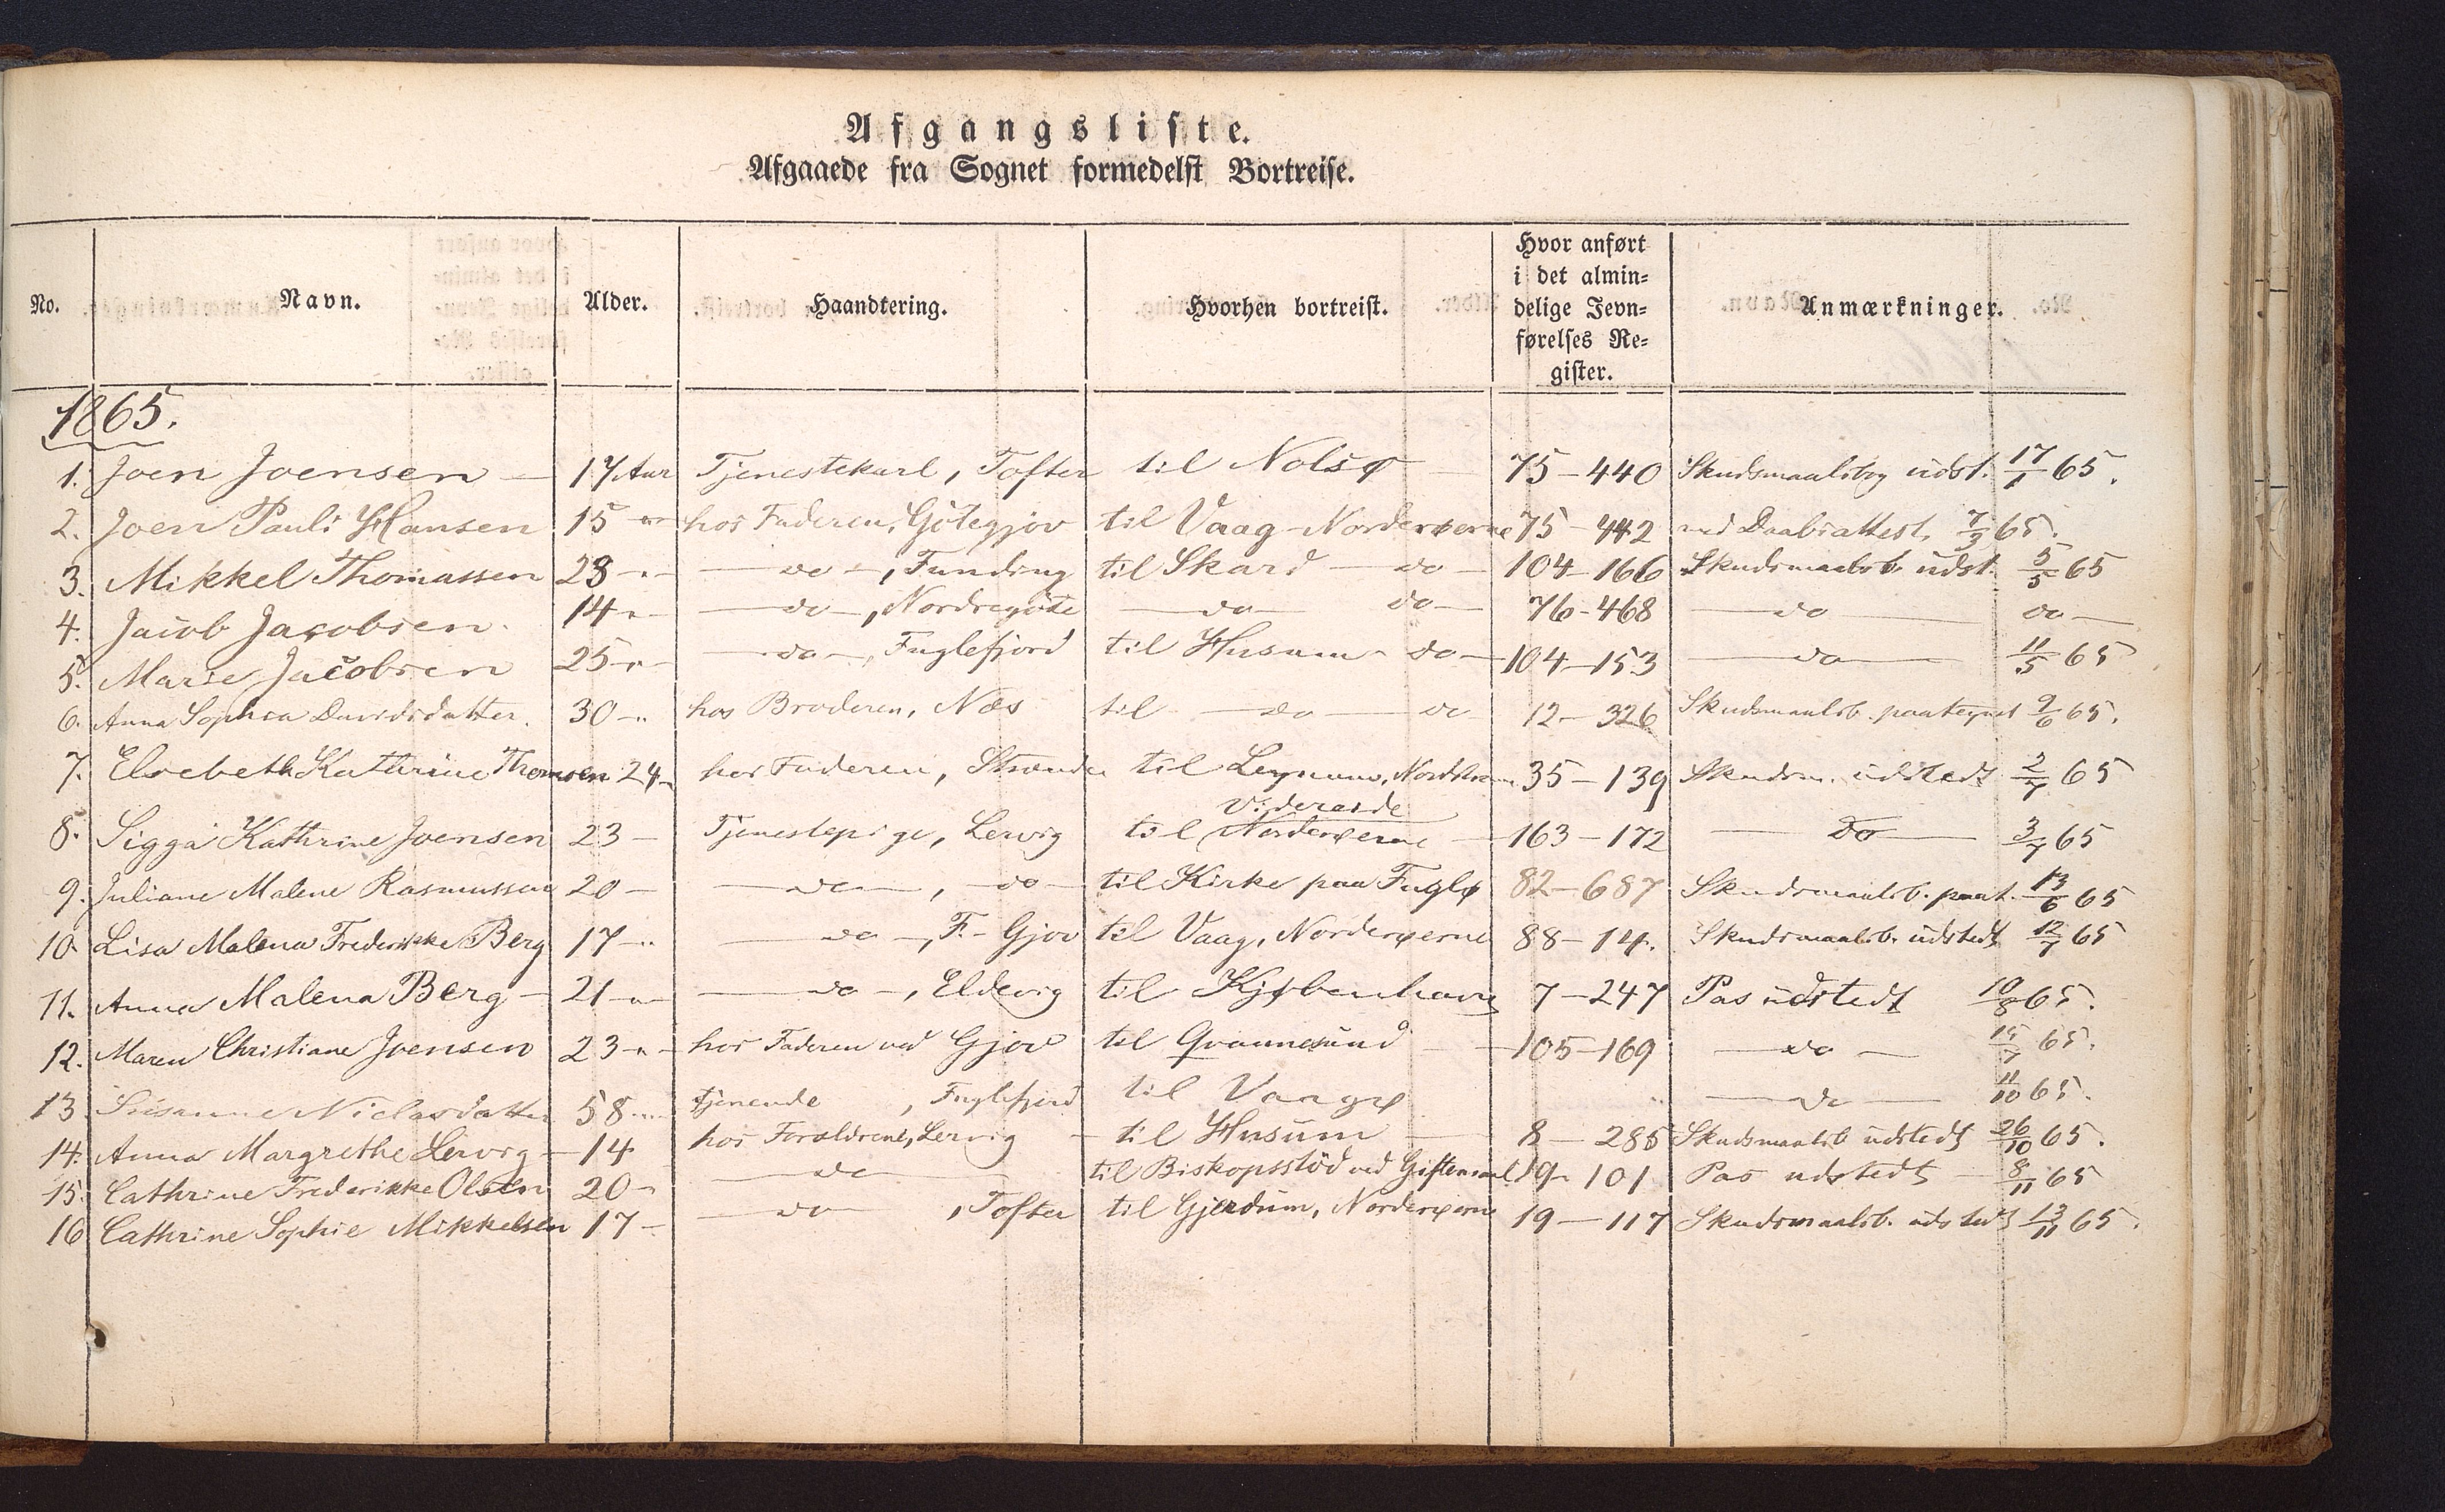 Afgangsliste.
Afgaaede fra Sognet formedelst Bortreise.
No. Navn. Alder. Haandtering. Hvorhen bortreist. Hvor anført i det almin= delige Jevn= førelses Re= gister. Anmærkninger.
1865.
1. Joen Joensen 17 Aar Tjenestekarl, Tofter til Nolsø 75-440 Skudsmaalsbog udst. 17/1 65.
2. Joen Pauli Hansen 15 " hos Faderen, Götegjov til Vaag Norderøerne 75-442 med Daabsattest 7/3 65.
3. Mikkel Thomassen 23 " do, Funding til Skard do 104-166 Skudsmaalsb. udst. 5/5 65
4. Jacob Jacobsen. 14 " do, Nordregöte do do 76-468 do do
5. Marie Jacobsen 25 " do, Fuglefjord til Husum do 104-153 do 11/5 65
6. Anna Sophia Davidsdatter. 30 " hos Broderen, Næs til do do 12-326 Skudsmaalsb. paategnet 9/6 65.
7. Elsebeth Kathrine Thomsen 24 hos Faderen, Strænder til Leynum, Nordstrøm 35-139 Skudsm. udstedt 2/7 65
8. Sigga Kathrine Joensen 23 Tjenestepige, Lervig til Videreide Norderøerne 163-172 Do 3/7 65
9. Juliane Malene Rasmussen 20 do, do til Kirke paa Fuglø 82-687 Skudsmaalsb. paat. 13/6 65
10. Lisa Malena Frederikke Berg 17 " do, F.-Gjov til Vaag, Norderøerne 88-14. Skudsmaalsb. udstedt 12/7 65
11. Anna Malena Berg 21 " do, Eldevig til Kjøbenhavn 7-247 Pas udstedt 10/8 65.
12. Maren Christiane Joensen 23 " hos Faderen ved Gjov til Qvannesund 105-169 do 15/7 65.
13 Susanne Niclasdatter 58 " tjenende, Fuglefjord til Vaagø do 11/10 65.
14. Anna Margrethe Lervig 14 hos Forældrene, Lervig til Husum 8-285 Skudsmaalsb udstedt 26/10 65.
15. Cathrine Frederikke Olsen 20 do til Biskopsstöd ved Giftermaal 19-101 Pas udstedt 8/11 65
16 Cathrine Sophie Mikkelsen 17 do, Tofter til Gjerdum, Norderøerne 19-117 Skudsmaalsb. udstedt 13/11 65.